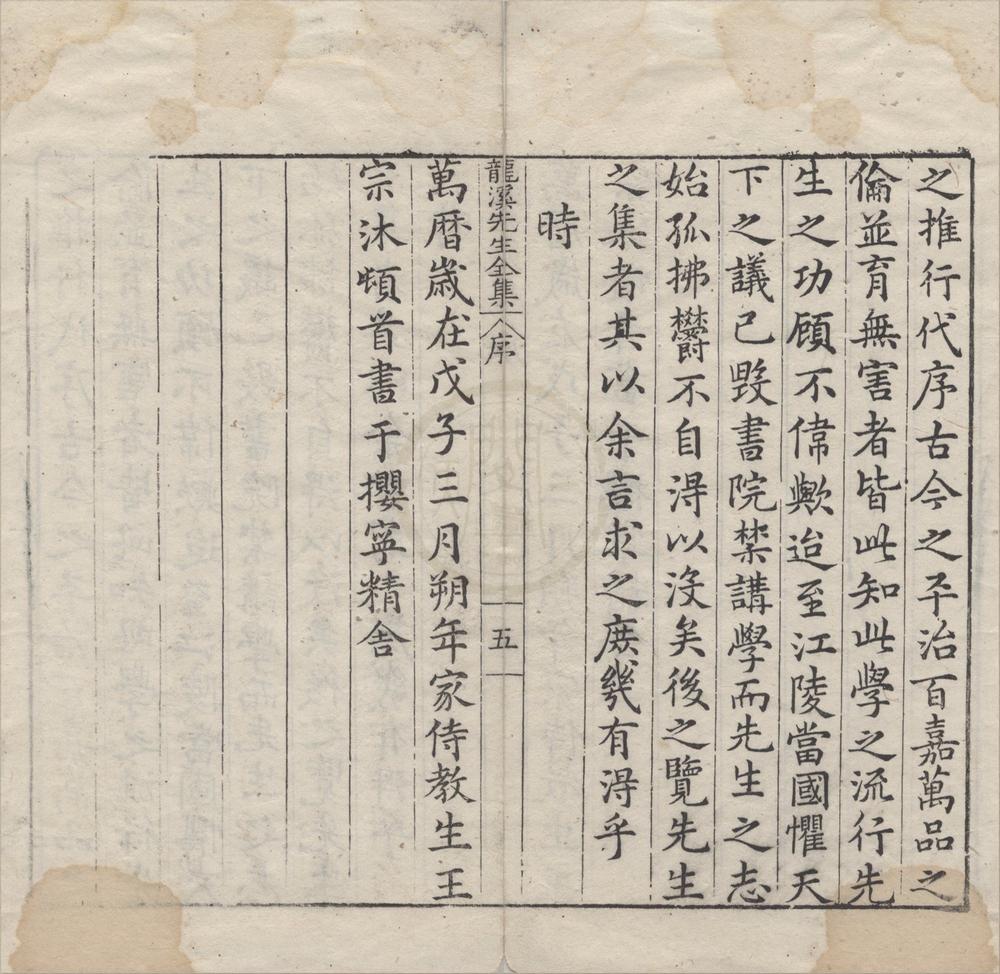 之推行代序古今之平治百嘉萬品之
倫並育無害者皆此知此學之流行先
生之功顧不偉歟迨至江陵當國懼天
下之議已毀書院禁講學而先生之志
始孤拂欝不自淂以沒矣後之覽先生
之集者其以余言求之庻幾有淂乎
時
龍溪先生全集 序 五
萬曆歲在戊子三月朔年家侍教生王
宗沐頓首書于攖寧精舍